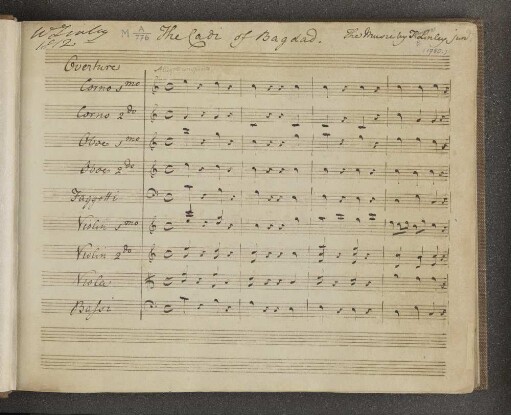 W Linley
1812
M A/776
The Cadi of Bagdad.
The Music by T Linley jun
Overture
Corno 1mo
Corno 2do
Oboe 1mo
Oboe 2do
Faggotti
Violin 1mo
Violin 2do
Viola
Bassi